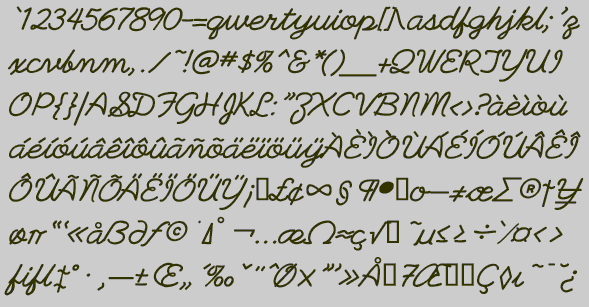 `1234567890-=qwertyuiop[]\asdfghjkl;'z
xcvbnm,./~!@#$%^&*()__+QWERTYUI
OP{}|ASDFGHJKL:"ZXCVBNM<>?àèìòù
áéíóúâêîôûãñõäëïöüÿÀÈÌÒÙÁÉÍÓÚÂÊÎ
ÔÛÃÑÕÄËÏÖÜŸ¡£¢∞§¶•o—≠œΣ®†¥
øπ"'«åß∂ƒ©˙∆°¬…æΩ≈ç√˜µ≤≥÷⁄¤<>
fifl‡°·‚—±Œ„´‰ˇ¨ˆØ×˝’»ÅÆÇ◊ı˜¯˘¿